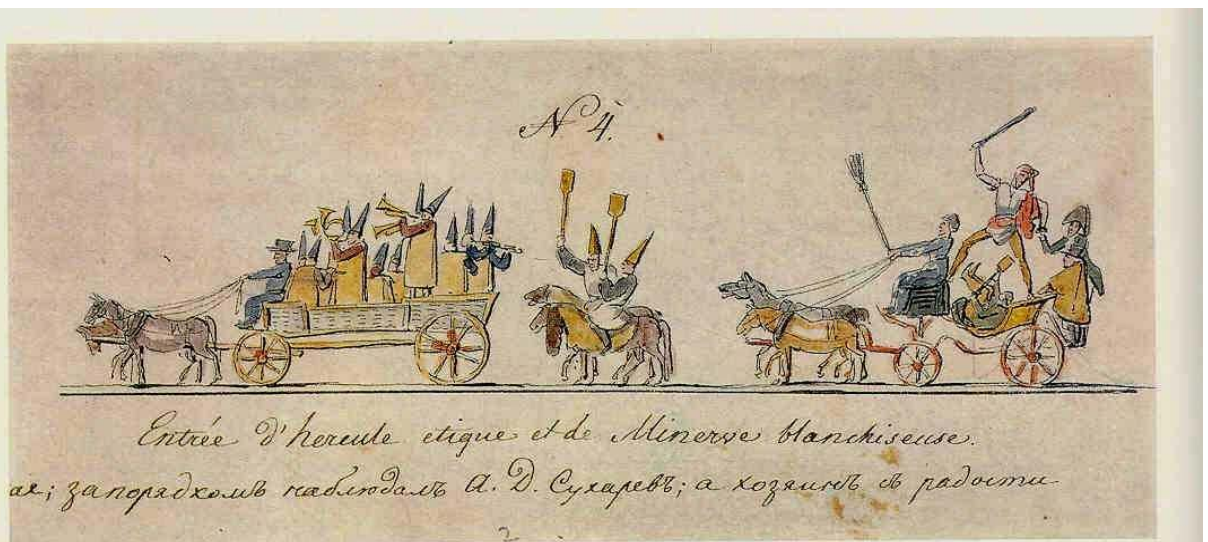 N 4.
Entrée d'hercule etique et de Minerve blanchiseuse.
ая; за порядкомъ наблюдалъ А. Д. Сухаревъ; а хозяинъ съ радости